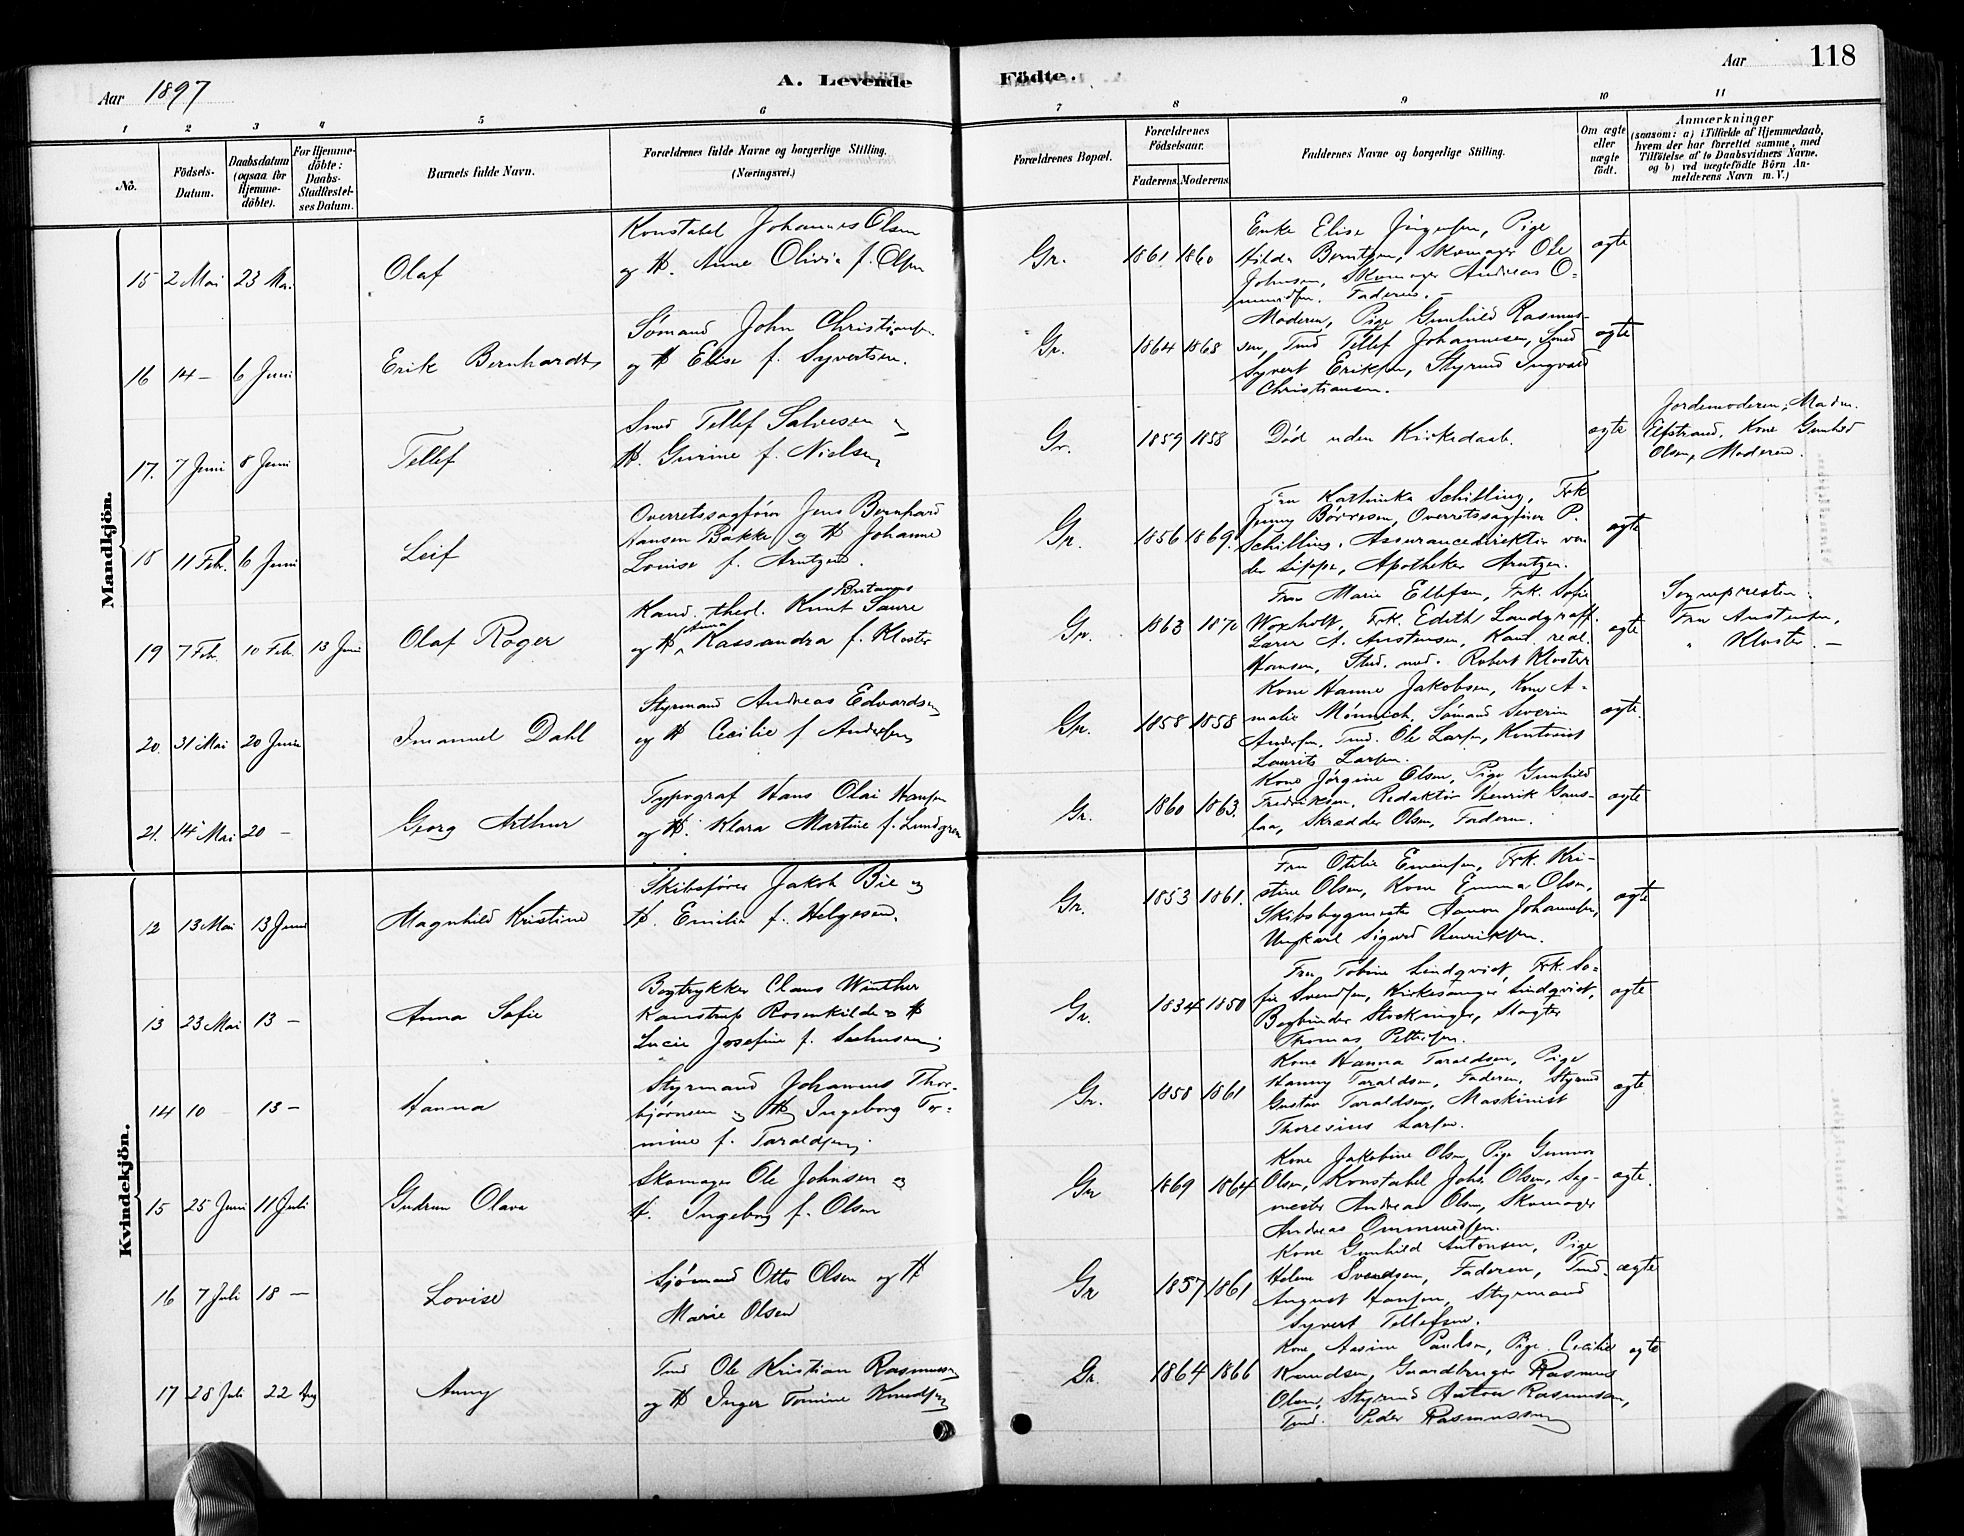 Aar 1897
A. Levende
Födte.
Aar
118
1 2 3 4 5 6 7 8 9 10 11
No.
Födsels-Datum.
Daabsdatum (ogsaa for Hjemme-döbte).
For Hjemme-döbte: Daabs-Stadfæstel-ses Datum.
Barnets fulde Navn.
Forældrenes fulde Navne og borgerlige Stilling. (Næringsvei.)
Forældrenes Bopæl.
Forældrenes Födselsaar.
Faderens. Moderens.
Faddernes Navne og borgerlige Stilling.
Om ægte eller uægte født.
Anmærkninger
(saasom: a) i Tilfælde af Hjemmedaab, hvem der har forrettet samme, med Tilföielse af to Daabsvidners Navne, og b) ved uægtefödte Börn Anmelderens Navn m. V.)
Mandkjön.
15 2 Mai 23 Mai Olaf
Konstabel Johannes Olsen
og H. Anne Olivia f. Olsen
Gr. 1861 1860
Enke Elise Jörgensen, Pige
Hilda Berntsen, Skomager Ole
Johnsen, Skomager Andreas O-
mundsen. Faderen. –
ægte
16 14 – 6 Juni Erik Bernhardt
Sømand John Christiansen
og H Elise f. Syvertsen.
Gr. 1864 1868
Moderen, Pige Gunhild Rasmus-
sen, Tmd Tellef Johannesen, Smed
Syvert Eriksen, Styrmd Ingvald
Christiansen.
ægte
17. 7 Juni 8 Juni Tellef
Smed Tellef Salvesen og
H. Gurine f. Nielsen
Gr. 1859 1858
Død uden Kirkedaab.
ægte
Jordemoderen, Madm.
Elfstrand, Kone Gunhild
Olsen, Moderen.
18 11 Feb. 6 Juni Leif
Overretssagfører Jens Bernhard
Hansen Bakke og H Johanne
Louise f. Arntzen.
Gr. 1856 1869.
Fru Kathinka Schilling, Frk
Jenny Børresen, Overretssagfører P.
Schilling, Assurancedirektør von
der Lippe, Apotheker Arntzen.
ægte
19 7 Feb. 10 Feb. 13 Juni Olaf Roger
Kand. theol. Knut Saure
og H Anna Kassandra f. Kloster
Gr. 1863 1870
Frue Marie Ellefsen, Frk. Sofie
Woxholt, Frk. Edith Landgraff.
Lærer A. Austensen, Kand. real.
Hansen, Stud. med. Robert Kloster
ægte
Sognepresten.
Fru Austensen,
" Kloster. –
20. 31 Mai 20 Juni Imanuel Dahl
Styrmand Andreas Edvardsen
og H Cecilie f Andersen
Gr. 1858 1858
Kone Hanne Jakobsen, Kone A-
malie Mönnich, Sømand Severin
Andersen, Tmd. Ole Larsen, Kontorist
Laurits Larsen.
ægte.
21. 14 Mai 20 – Georg Arthur
Typograf Hans Olai Hansen
og H. Klara Martine f. Lundgren
Gr. 1860 1863.
Kone Jörgine Olsen, Pige Gunhild
Fredriksen, Redaktør Henrik Gaus-
laa, Skrædder Olsen, Faderen.
ægte
Kvindekjön.
12 13 Mai 13 Juni Magnhild Kristine
Skibsfører Jakob Bie og
H. Emilie f. Helgesen.
Gr. 1853 1861.
Fru Otilie Evensen, Frk. Kri-
stine Olsen, Kone Emma Olsen,
Skibsbygmester Aanon Johannesen,
Ungkarl Sigurd Henriksen.
ægte
13 23 Mai 13 – Anna Sofie
Bogtrykker Claus Winther
Kamstrup Rosenkilde og H
Lucie Josefine f.
Gr. 1834 1850
Fru Tobine Lindqvist, Frk. So-
fie Svendsen, Kirkesanger Lindqvist,
Bogbinder Stockinger, Slagter
Thomas Pettersen.
ægte
14 10 13 – Hanna
Styrmand Johannes Thor-
bjørnsen og H Ingeborg Tor-
mine f. Taraldsen.
Gr. 1858 1861
Kone Hanna Taraldsen, Pige
Hanny Taraldsen, Faderen, Styrmd
Gustav Taraldsen, Maskinist
Thoresius Larsen.
ægte.
15 25 Juni 11 Juli Gudrun Olava
Skomager Ole Johnsen og
H. Ingeborg f. Olsen
Gr 1869 1864
Kone Jakobine Olsen, Pige Gunvor
Olsen, Konstabel Johs. Olsen, Seg-
mester Andreas Olsen, Skomager
Andreas Ommundsen.
ægte.
16 7 Juli 18 – Lovise
Sjømand Otto Olsen og H
Marie Olsen
Gr 1857 1861
Kone Gunhild Antonsen, Pige
Helene Svendsen, Faderen, Tmd.
August Hansen, Styrmand
Syvert Tellefsen.
ægte
17 28 Juli 22 Aug Anny
Tmd Ole Kristian Rasmussen
og H Inger Tomine Knudsen
Gr. 1864 1866
Kone Aasine Paulsen, Pige Cecilie
Knudsen, Gaardbruger Rasmus
Olsen, Styrmd Anton Rasmussen,
Tmd. Peder Rasmussen
ægte